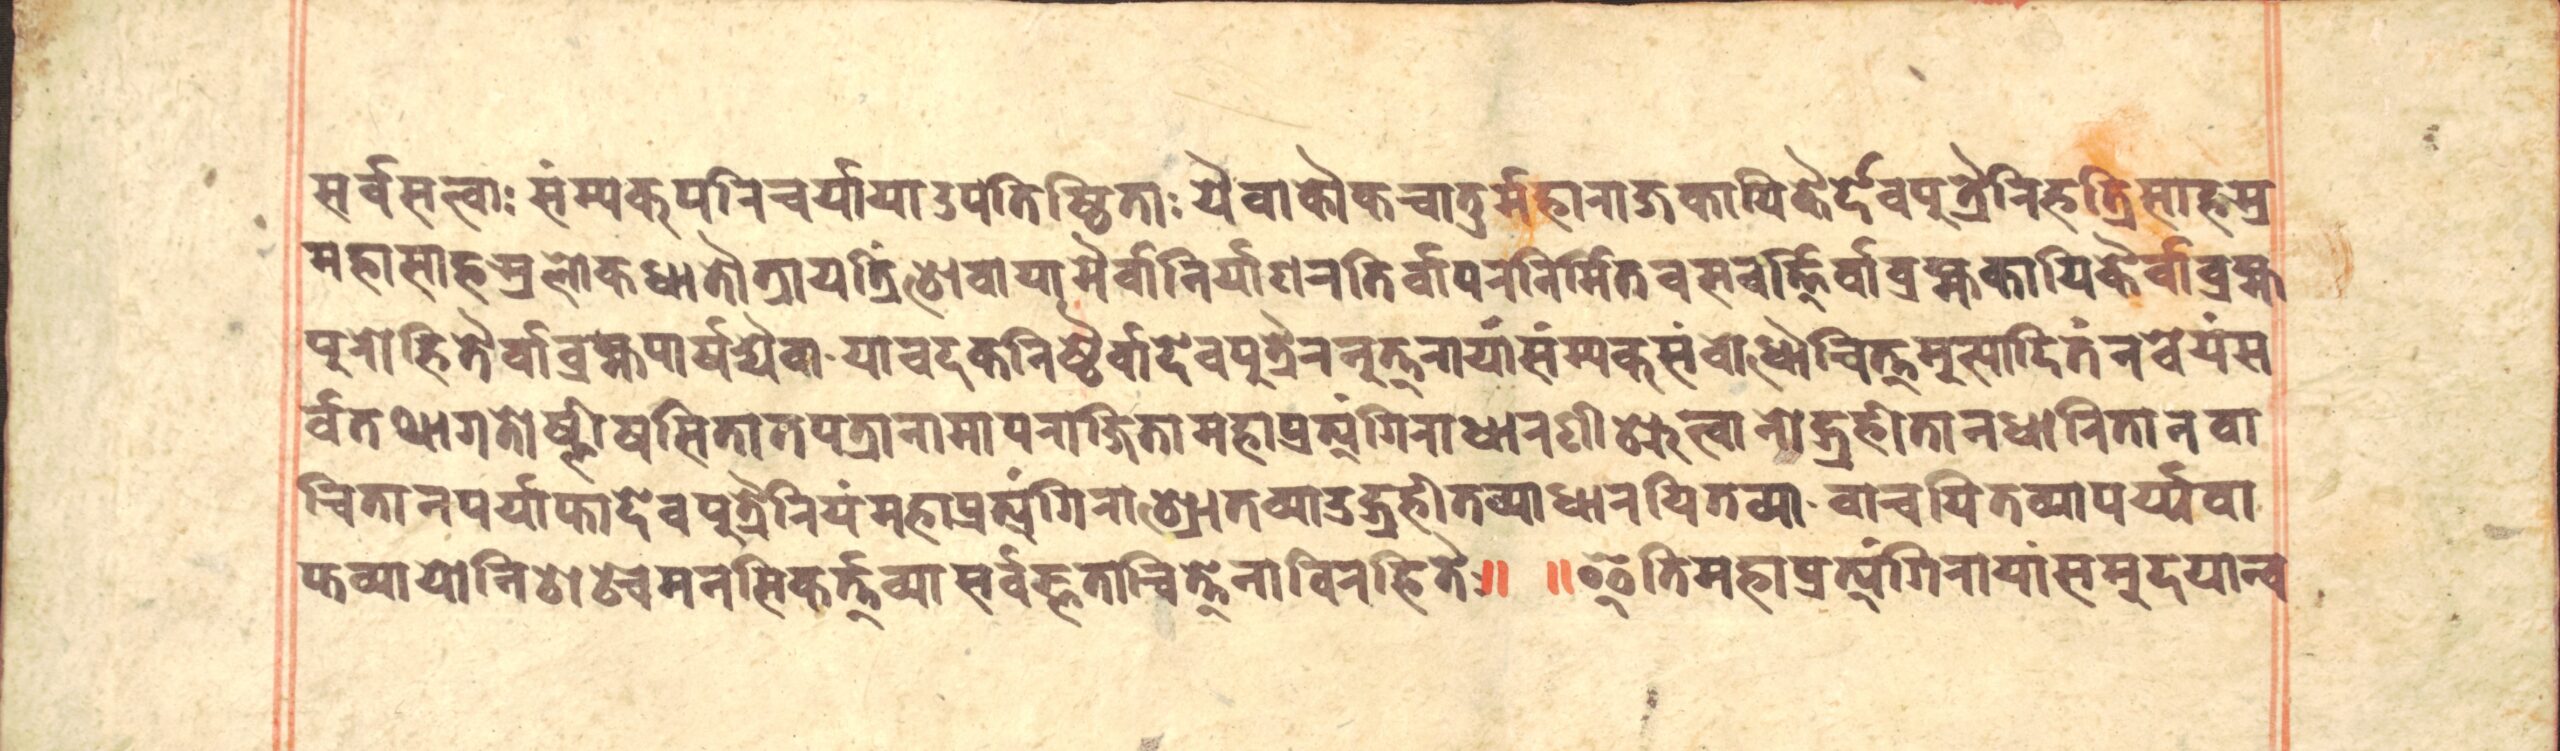 सर्वसत्वाः संम्यक्पनिचर्यायाउपतिष्ठिताः यैवाकौकचातुर्महानाजकायिकैर्देवपुत्रैनिहत्रिसाहस्र
महासाहस्रलोकधातौत्रायत्रिंशेवायामैर्वानिर्याशनतिर्वापननिर्मितवसवर्त्तिर्वाब्रह्मकायिकैर्वाब्रह्म
पुनोहितैर्वाब्रह्मपार्षद्यैवा यावदकनिष्ठैर्वादेवपुत्रैननुत्तनायांसंम्यक्संबोधौचित्तमुत्पादितंनवेयंस
र्वतथागतोष्णीषसितातपत्रानामापनाजितामहाप्रत्यंगिनाधानणीश्रुत्वानोद्गृहीतानधानितानवा
चितानपर्याप्तादेवपुत्रैनियंमहाप्रत्यंगिनाश्रोतव्याउद्गृहीतव्याधानयितव्या वाचयितव्यापर्य्यवा
प्तव्यायोनिशोशेचमनसिकर्त्तव्यासर्वज्ञताचित्तेनाविनहितैः॥ ॥इतिमहाप्रत्यंगिनायांसमुदयान्व